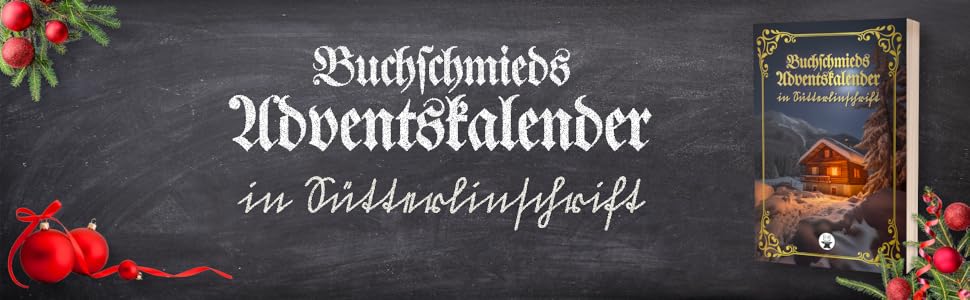 Buchſchmieds
Adventskalender
in Sütterlinſchrift
Buchſchmieds
Adventskalender
in Sütterlinſchrift